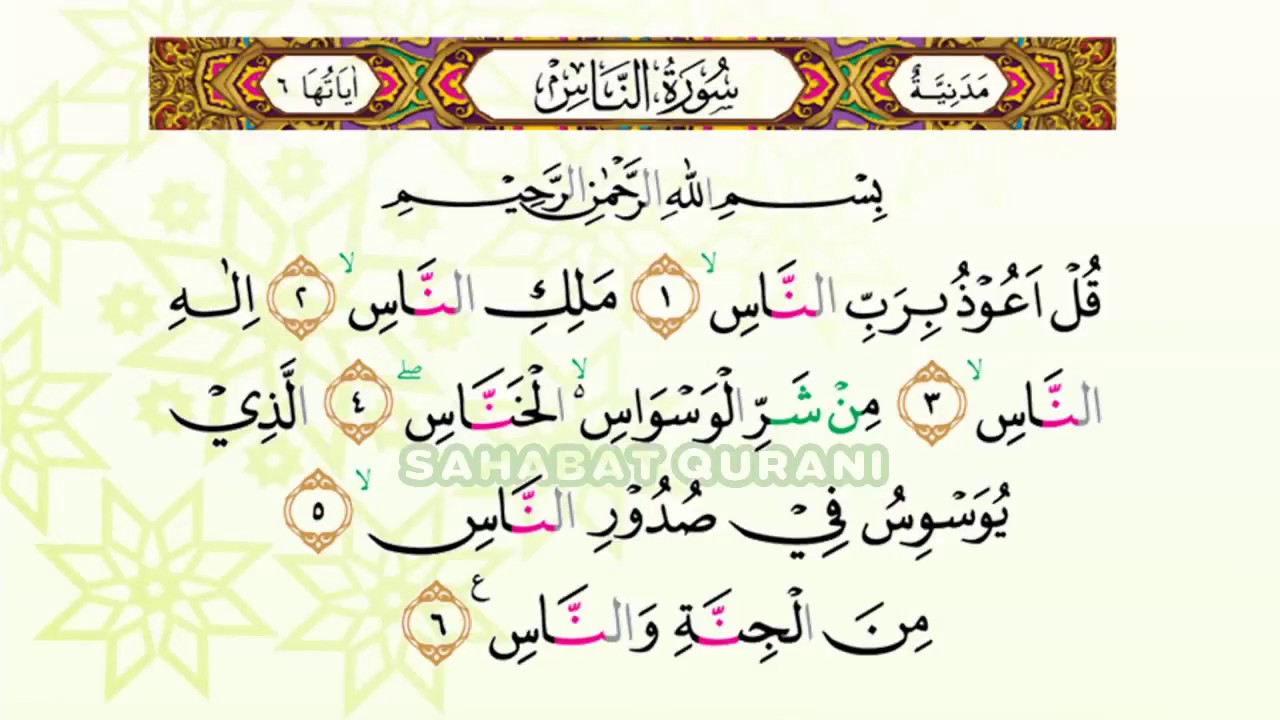 مَدَنِيَّةٌ سُوْرَةُ النَّاسِ اٰيَاتُهَا ٦
بِسْمِ اللّٰهِ الرَّحْمٰنِ الرَّحِيْمِ
قُلْ اَعُوْذُ بِرَبِّ النَّاسِۙ ١ مَلِكِ النَّاسِۙ ٢ اِلٰهِ
النَّاسِۙ ٣ مِنْ شَرِّ الْوَسْوَاسِ ەۙ الْخَنَّاسِۖ ٤ الَّذِيْ
SAHABAT QURANI
يُوَسْوِسُ فِيْ صُدُوْرِ النَّاسِۙ ٥
مِنَ الْجِنَّةِ وَالنَّاسِ ࣖ ٦